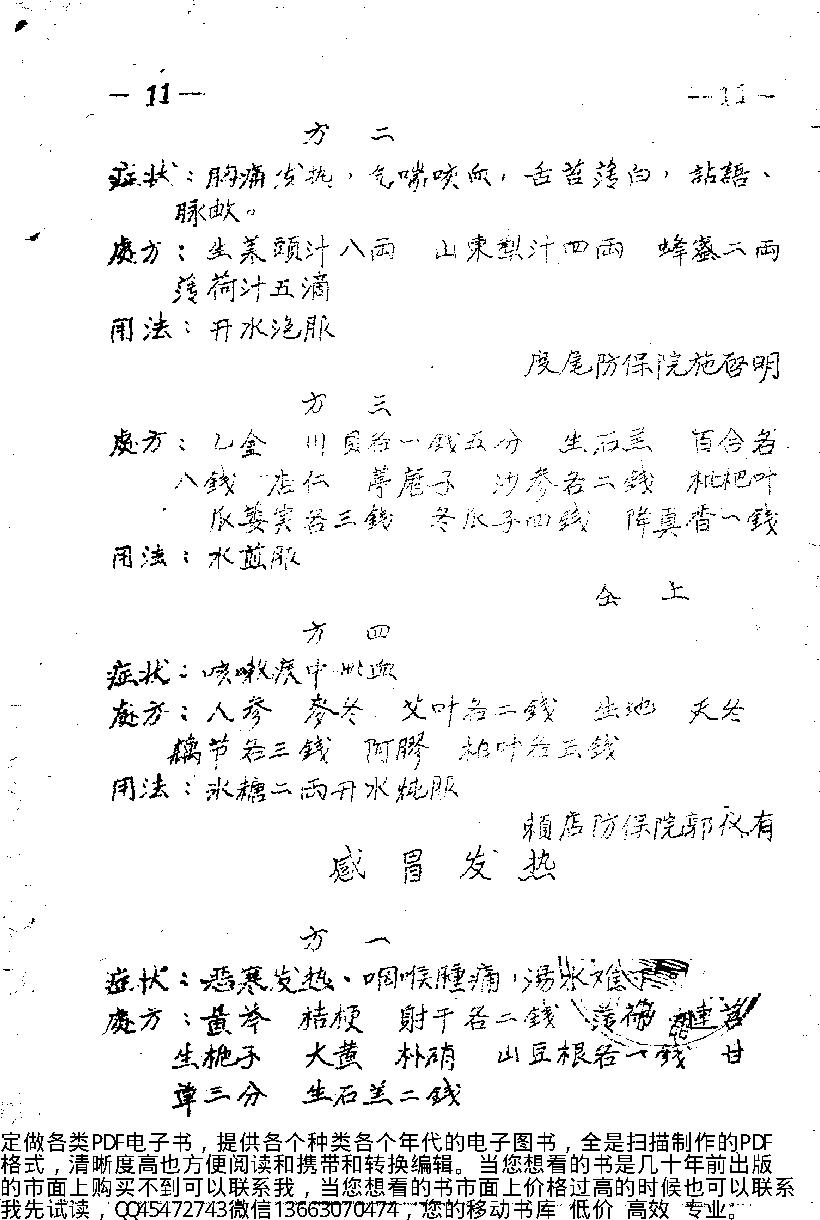 — 11 —
— 11 —
方 二
症状：胸痛发热，气喘咳血，舌苔薄白，訁语、
脉数。
處方：生菜頭汁八兩 山東梨汁四兩 蜂蜜二兩
薄荷汁五滴
用法：开水泡服
度尾防保院施啓明
方 三
處方：乙金 川貝各一錢五分 生石羔 百合各
八錢 杏仁 葶藶子 沙參各二錢 枇杷叶
瓜蒌实各三錢 冬瓜子四錢 降真香一錢
用法：水煎服
仝 上
方 四
症状：咳嗽痰中出血
處方：人參 麥冬 艾叶各二錢 生地 天冬
藕节各三錢 阿膠 柏叶各五錢
用法：冰糖二兩开水炖服
賴店防保院郭仪有
感 冒 发 热
方 一
症状：恶寒发热、咽喉腫痛，湯水难
處方：黃芩 桔梗 射干各二錢 薄荷 連
生栀子 大黄 朴硝 山豆根各一錢 甘
草三分 生石羔二錢
定做各类PDF电子书，提供各个种类各个年代的电子图书，全是扫描制作的PDF
格式，清晰度高也方便阅读和携带和转换编辑。当您想看的书是几十年前出版
的市面上购买不到可以联系我，当您想看的书市面上价格过高的时候也可以联系
我先试读，QQ45472743微信13663070474，您的移动书库 低价 高效 专业。